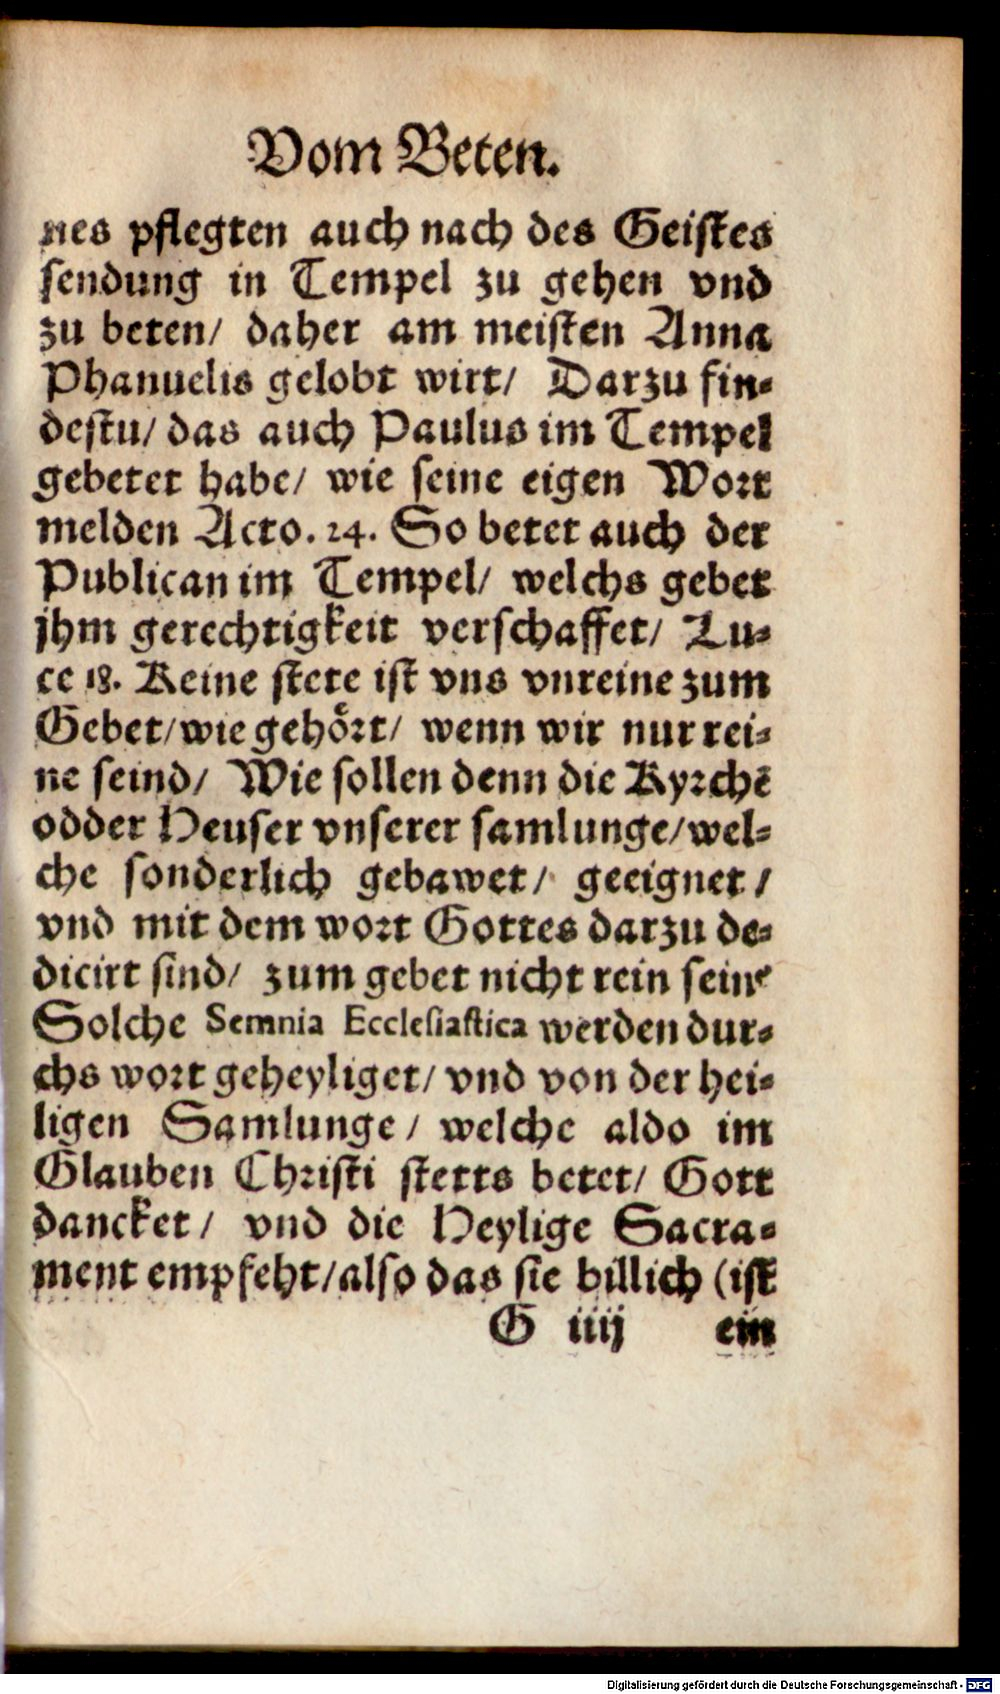 Vom Beten.
nes pflegten auch nach des Geistes
sendung in Tempel zu gehen vnd
zu beten/ daher am meisten Anna
Phanuelis gelobt wirt/ Darzu fin-
destu/ das auch Paulus im Tempel
gebetet habe/ wie seine eigen Wort
melden Acto. 24. So betet auch der
Publican im Tempel/ welchs gebet
jhm gerechtigkeit verschaffet/ Lu-
ce 18. Keine stete ist vns vnreine zum
Gebet/ wie gehoͤrt/ wenn wir nur rei-
ne seind/ Wie sollen denn die Kyrchē
odder Heuser vnserer samlunge/ wel-
che sonderlich gebawet/ geeignet/
vnd mit dem wort Gottes darzu de-
dicirt sind/ zum gebet nicht rein sein?
Solche Semnia Ecclesiastica werden dur-
chs wort geheyliget/ vnd von der hei-
ligen Samlunge/ welche aldo im
Glauben Christi stetts betet/ Gott
dancket/ vnd die Heylige Sacra-
ment empfeht/ also das sie billich (ist
G iiij ein
Digitalisierung gefördert durch die Deutsche Forschungsgemeinschaft - DFG